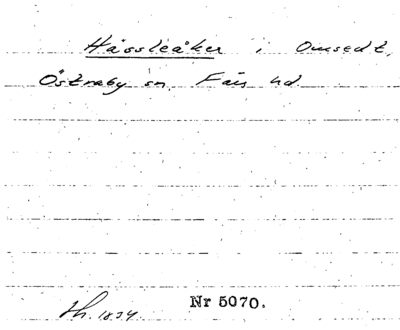 Hässleåker i Onsedt,
Östraby sn Färs hd
Lh. 1834. Nr 5070.